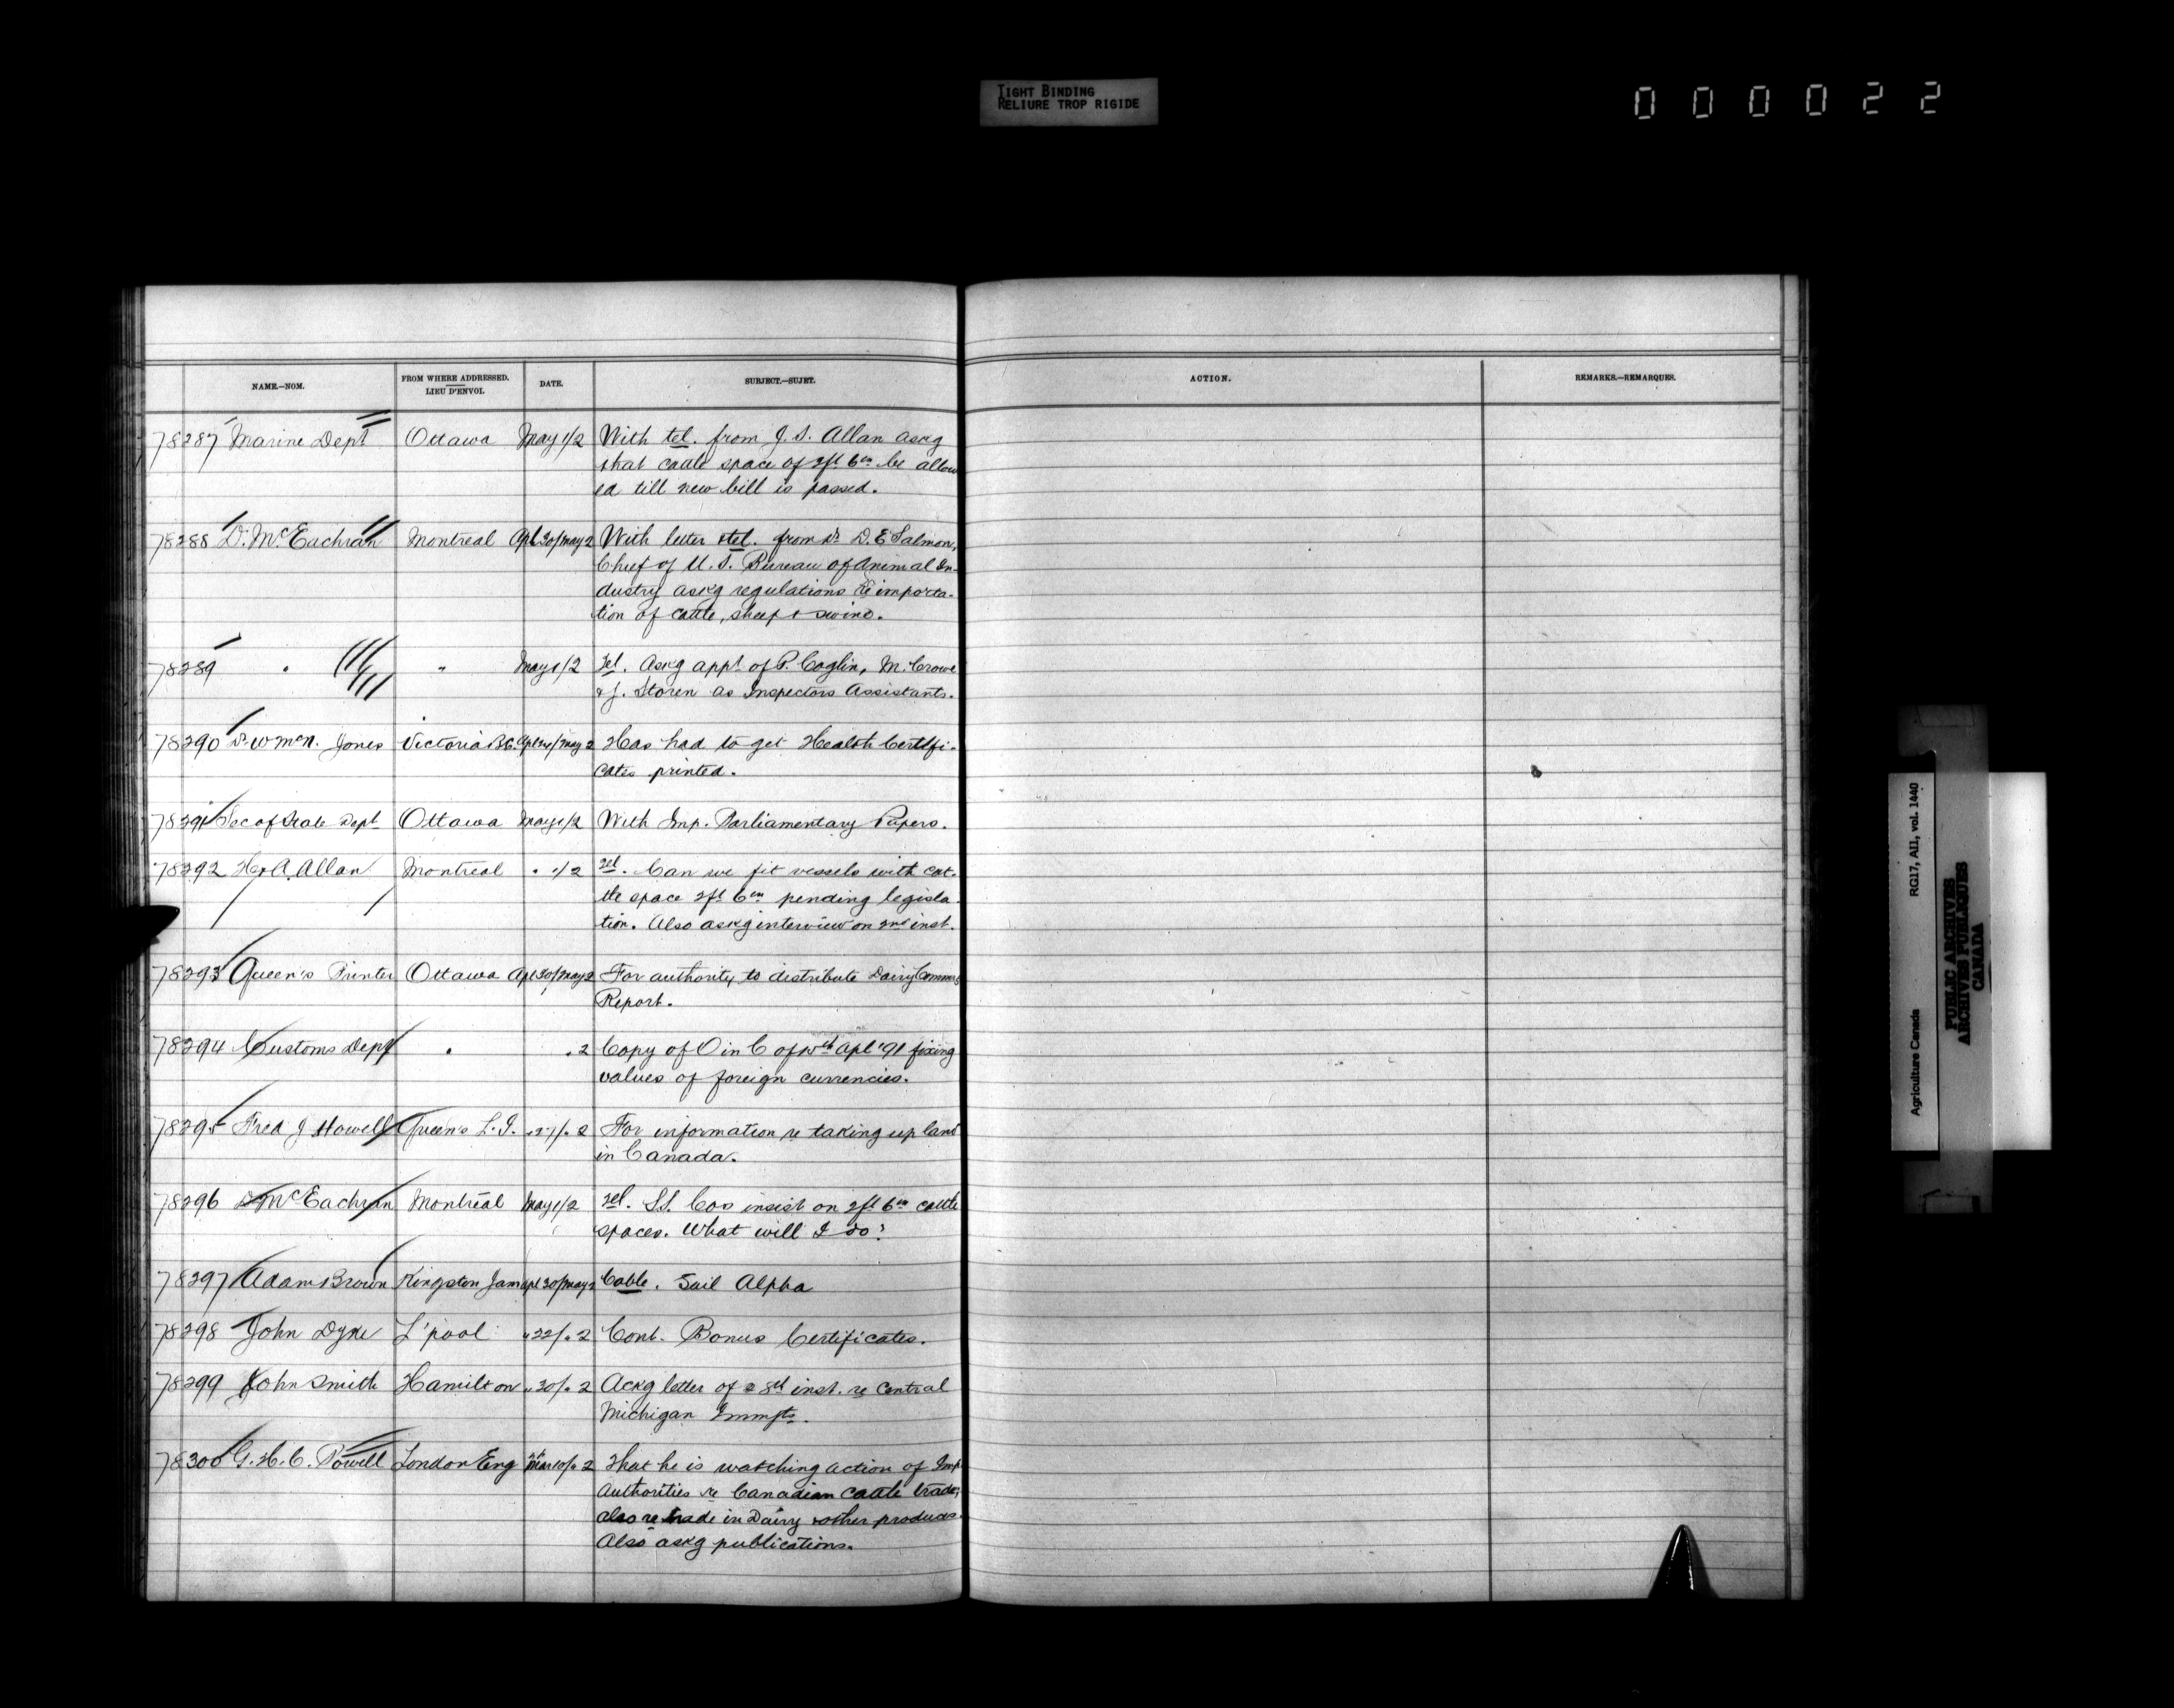 TIGHT BINDING
RELIURE TROP RIGIDE
000022
NAME.—NOM.
FROM WHERE ADDRESSED.
LIEU D'ENVOI.
DATE.
SUBJECT.—SUJET.
ACTION.
REMARKS.—REMARQUES.
78287 Marine Dept Ottawa May 1/2 With tel. from J. S. Allan askg
that cattle space of 2ft 6in be allow
ed till new bill is passed.
78288 Dr. McEachran Montreal Apl 30/May 2 With letter & tel. from Dr D. E Salmon,
Chief of U. S. Bureau of Animal In-
dustry askg regulations re importa-
tion of cattle, sheep & swine.
78289 " " May 1/2 Tel. Askg appt of P. Coglin, M. Crowe
& J. Storen as Inspectors Assistants.
78290 Dr W McN. Jones Victoria B.C. Apl 24/May 2 Has had to get Health Certifi-
cates printed.
78291 Sec of State Dept Ottawa May 1/2 With Imp. Parliamentary Papers.
78292 H. A. Allan Montreal " 1/2 Tel. Can we fit vessels with cat-
tle space 2ft 6in pending legisla
tion. Also askg interview on 2nd inst.
78293 Queen's Printer Ottawa Apl 30/May 2 For authority to distribute Dairy Commrs
Report.
78294 Customs Dept " " 2 Copy of O in C of Apl '91 fixing
values of foreign currencies.
78295 Fred J Howell Queen's L. I. " 27/" 2 For information re taking up land
in Canada.
78296 Dr McEachran Montreal May 1/2 Tel. S.S. Cos insist on 2ft 6in cattle
spaces. What will I do?
78297 Adam Brown Kingston Jam Apl 30/May 2 Cable. Sail Alpha
78298 John Dyke L'pool " 22/" 2 Cont. Bonus Certificates.
78299 John Smith Hamilton " 30/" 2 Ackg letter of 8th inst. re Central
Michigan Immgts.
78300 G. H. C. Powell London Eng Mar 10/" 2 That he is watching action of Imp
Authorities re Canadian cattle trade;
also re trade in Dairy & other produces.
Also askg publications.
Agriculture Canada RG17, AII, vol. 1440
PUBLIC ARCHIVES
ARCHIVES PUBLIQUES
CANADA